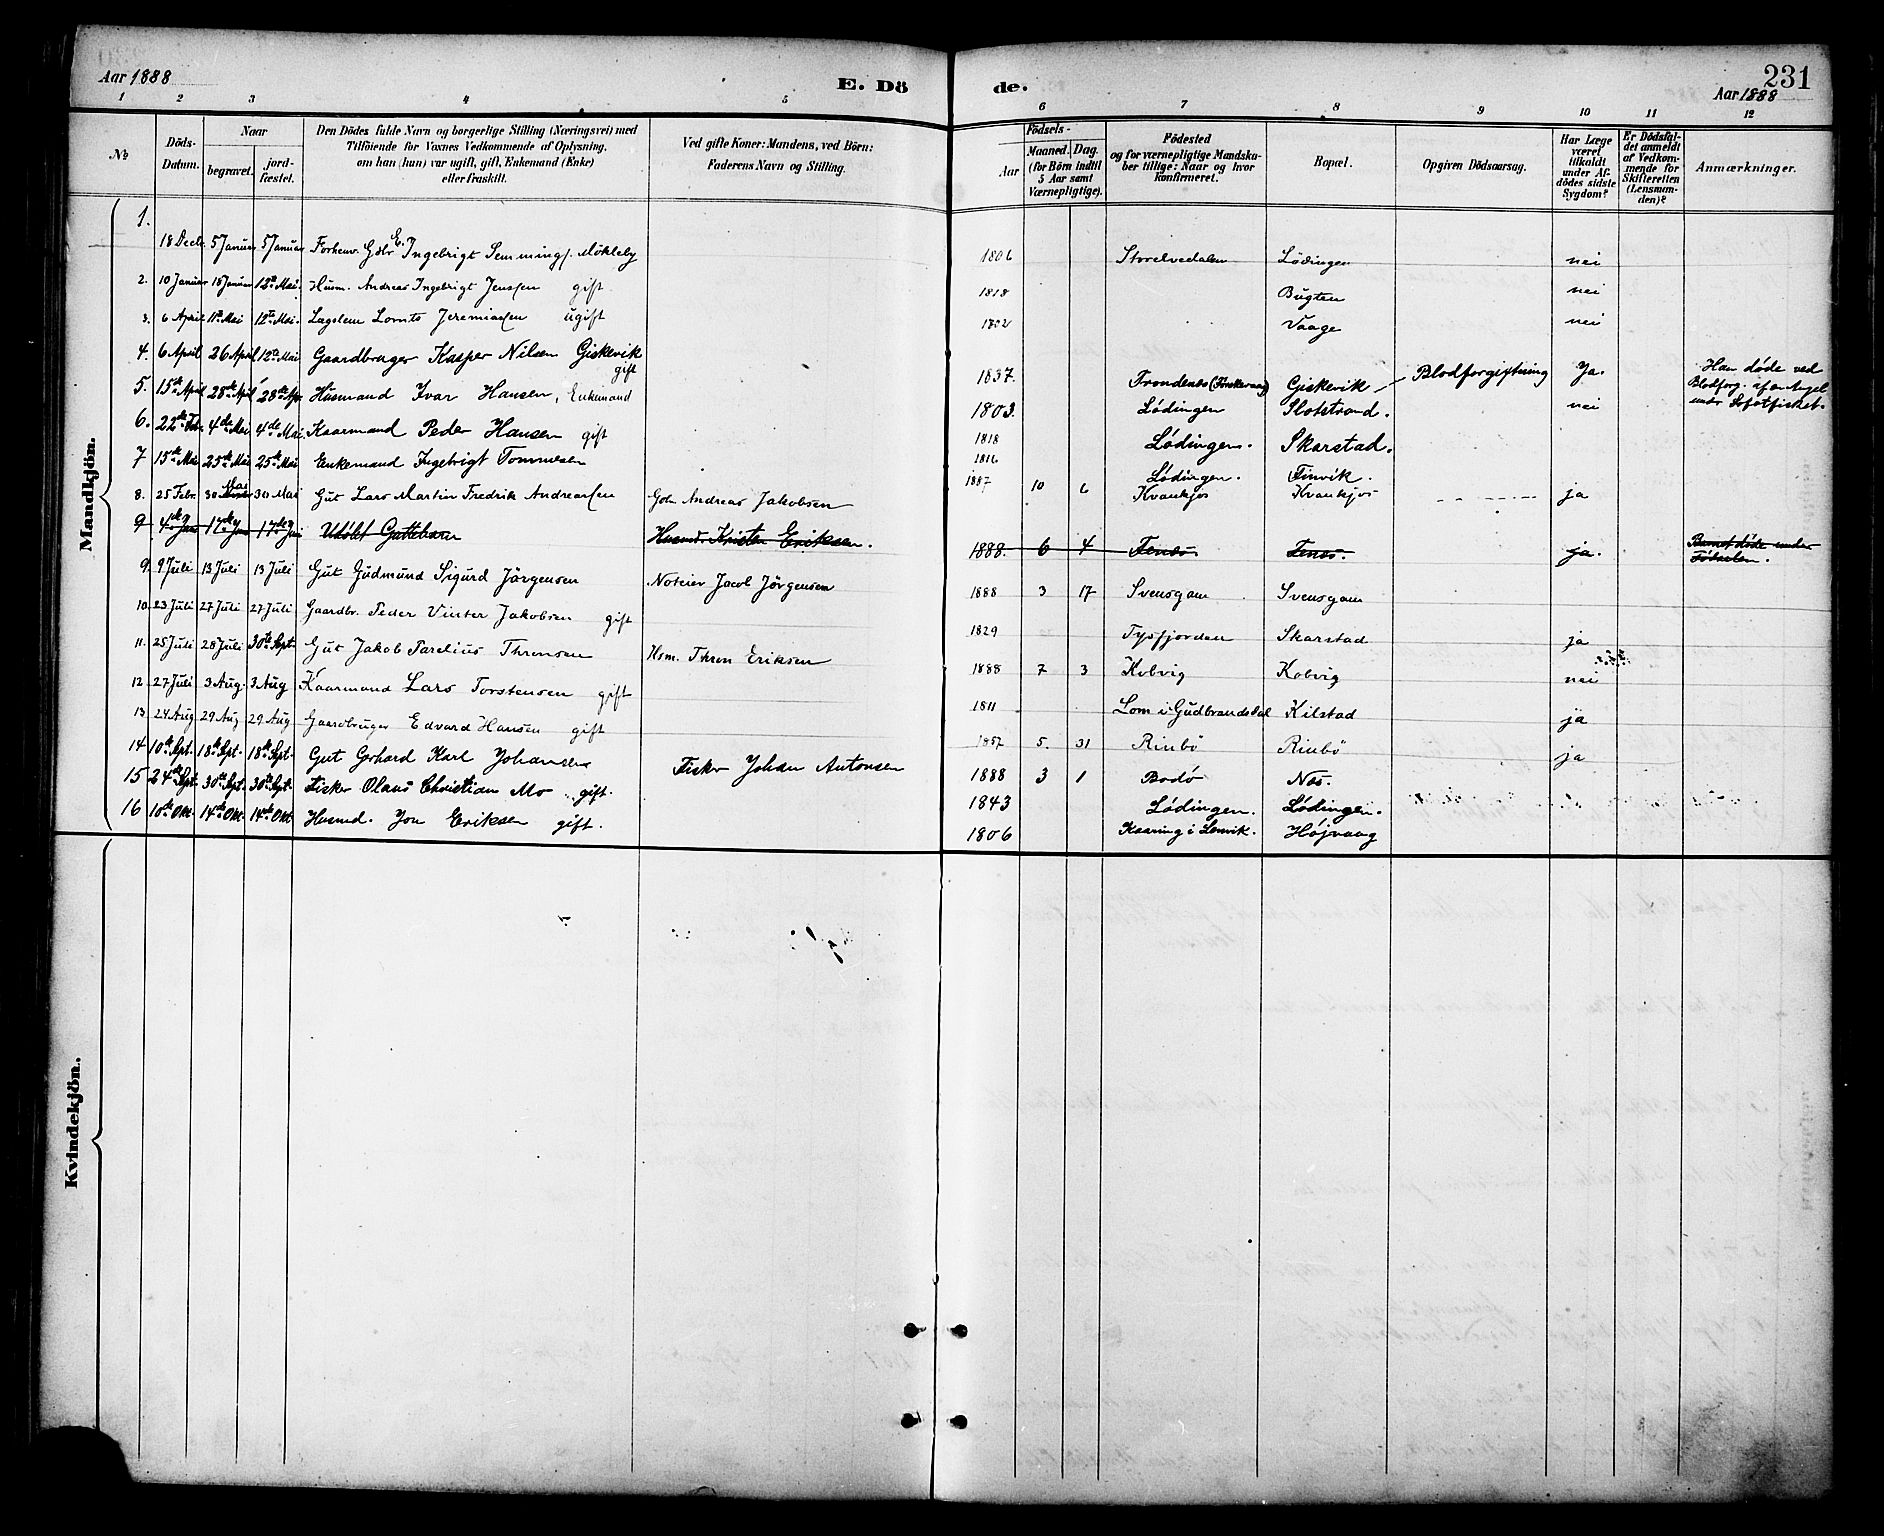 Aar 1888 E. Dö de. 231
Aar 1888
1 2 3 4 5 6 7 8 9 10 11 12
№ Döds-Datum. Naar begravet. jord-fæstet. Den Dödes fulde Navn og borgerlige Stilling (Næringsvei) med Tilföiende for Voxnes Vedkommende af Oplysning, om han (hun) var ugift, gift, Enkemand (Enke) eller fraskilt. Ved gifte Koner: Mandens, ved Börn: Faderens Navn og Stilling. Födsels- Aar Maaned. Dag. (for Börn indtil 5 Aar samt Værnepligtige). Födested og for værnepligtige Mandskaber tillige: Naar og hvor konfirmeret. Bopæl. Opgiven Dödsaarsag. Har Læge været tilkaldt under Afdödes sidste Sygdom? Er Dödsfaldet anmeldt af Vedkommende for Skifteretten (Lensmanden)? Anmærkninger.
Mandkjön.
1. 18 Decb. 5 Januar 5 Januar Forhenv. Gdbr E. Ingebrigt Semmings. Mökleby 1806 Storelvedalen Lödingen nei
2. 10 Januar 18 Januar 12te Mai. Husm. Andreas Ingebrigt Jenssen gift 1818 Bugten nei
3. 6 April 11te Mai 12te Mai. Lægslem Lornts Jeremiassen ugift 1802 Vaage nei
4. 6 April 26 April 12te Mai Gaardbruger Kasper Nilsen Giskevik gift 1837. Trondenes Giskevik Blodforgiftning Ja. Han døde ved Blodforg. af en Angel under Lofotfisket.
5. 15de April 28de April 28de Apr. Husmand Ivar Hansen, Enkemand 1803. Lödingen Slotstrand. nei
6. 22de Febr. 4de Mai 4de Mai. Kaarmand Peder Hansen gift 1818 Lödingen. Skarstad.
7 15de Mai 25de Mai 25de Mai Enkemand Ingebrigt Tommesen 1816 Lödingen. Finvik.
8. 25 Febr. 30 Mai 30 Mai Gut Lars Martin Fredrik Andreassen Gdb. Andreas Jakobsen 1887 10 6 Kvankjos Kvankjos ja
9 4de Juni 17de Juni 17de Juni Udöbt Guttebarn Husmd. Kristen Eriksen. 1888. 6 4 Fenes. Fenes. ja. Barnet døde under Födselen.
9. 9 Juli 13 Juli 13 Juli Gut Gudmund Sigurd Jörgensen Noteier Jacob Jörgensen 1888 3 17 Svensgam Svensgam
10. 23 Juli 27 Juli 27 Juli Gaardbr. Peder Vinter Jakobsen gift 1829 Tysfjorden Skarstad ja
11. 25 Juli 28 Juli 30te Sept. Gut Jakob Parelius Thronsen Hsm. Thron Eriksen 1888 7 3 Kobvig Kobvig nei
12. 27 Juli 3 Aug. 3 Aug Kaarmand Lars Torstensen gift 1811 Lom i Gudbrandsdal Kilstad ja
13. 24 Aug 29 Aug 29 Aug Gaardbruger Edvard Hansen gift 1857 5. 31 Rinbö Rinbö ja
14 10de Sept. 18de Sept. 18de Sept. Gut Gerhard Karl Johansen Fisker Johan Antonsen 1888 3 1 Bodö Nes.
15 24de Sept. 30te Sept. 30te Sept. Fisker Olaus Christian Mo gift. 1843 Lödingen. Lödingen.
16 10de Okt. 14de Okt. 14de Okt Husmd. Jon Eriksen gift. 1806 Kaaring i Lenvik. Højvaag
Kvindekjön.